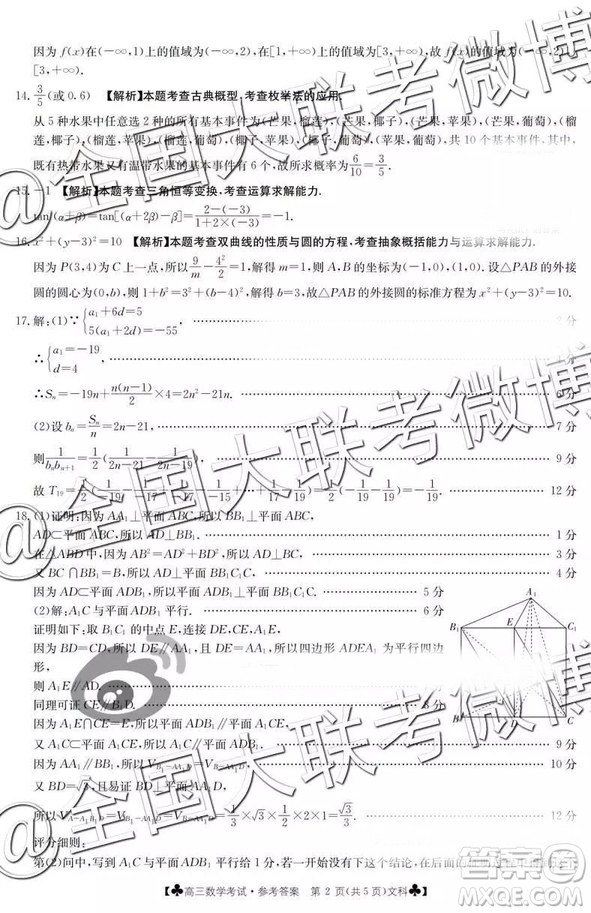 因为f(x)在(-∞,1)上的值域为(-∞,2),在[1,+∞)上的值域为[3,+∞),故f(x)的值域为(-∞,2)∪
[3,+∞).
14. 3/5(或0.6) 【解析】本题考查古典概型,考查枚举法的应用.
从5种水果中任意选2种的所有可能为(芒果,榴莲),(芒果,椰子),(芒果,苹果),(芒果,葡萄),(榴
莲,椰子),(榴莲,苹果),(榴莲,葡萄),(椰子,苹果),(椰子,葡萄),(苹果,葡萄),共10个基本事件,其中,
既有热带水果又有温带水果的基本事件有6个,故所求概率为6/10=3/5.
15. -1 【解析】本题考查三角恒等变换,考查运算求解能力.
tan(α+β)=tan[(α+2β)-β]=
16. x²+(y-3)²=10 【解析】本题考查双曲线的性质与圆的方程,考查抽象概括能力与运算求解能力.
因为P(3,4)为C上一点,所以9/m-4²/2=1,解得m=1,则A,B的坐标为(-1,0),(1,0).设△PAB的外接
圆的圆心为(0,b),则1+b²=3²+(b-4)²,解得b=3,故△PAB的外接圆的标准方程为x²+(y-3)²=10.
17. 解:(1)∵{a₁+6d=5 5(a₁+2d)=-55, 2分
∴{a₁=-19 d=4. 4分
∴Sₙ=-19n+n(n-1)/2×4=2n²-21n. 6分
(2)设bₙ=Sₙ/n=2n-21, 7分
则1/(bₙbₙ₊₁)=1/2(1/(2n-21)-1/(2n-19)), 9分
故T₁₉= 12分
18. (1)证明:因为AA₁⊥平面ABC,所以BB₁⊥平面ABC,
AD⊂平面ABC,所以AD⊥BB₁. 1分
在△ABD中,因为AB²=AD²+BD²,所以AD⊥BC. 3分
又BC∩BB₁=B,所以AD⊥平面BB₁C₁C. 4分
因为AD⊂平面ADB₁,所以平面ADB₁⊥平面BB₁C₁C. 5分
(2)解:A₁C与平面ADB₁平行. 6分
证明如下:取B₁C₁的中点E,连接DE,CE,A₁E,
因为BB₁∥DE∥AA₁,且BB₁=DE=AA₁,所以四边形ADEA₁为平行四边形,
则A₁E∥AD. 7分
同理可证CE∥B₁D. 8分
因为A₁E∩CE=E,所以平面ADB₁∥平面A₁CE,
又A₁C⊂平面A₁CE,所以A₁C∥平面ADB₁. 9分
因为AA₁∥BB₁,所以 10分
又BD=√3,且易证BD⊥平面AA₁D,
所以 =1/3×√3×1/2×2×1=√3/3. 12分
评分细则:
第(2)问中,写到A₁C与平面ADB₁平行给1分,若没有写到这个结论,
A₁
B₁
C₁
♣高三数学考试·参考答案 第2页(共5页)文科♣
@全国大联考微博
@全国大联考微博
@全国大联考微博